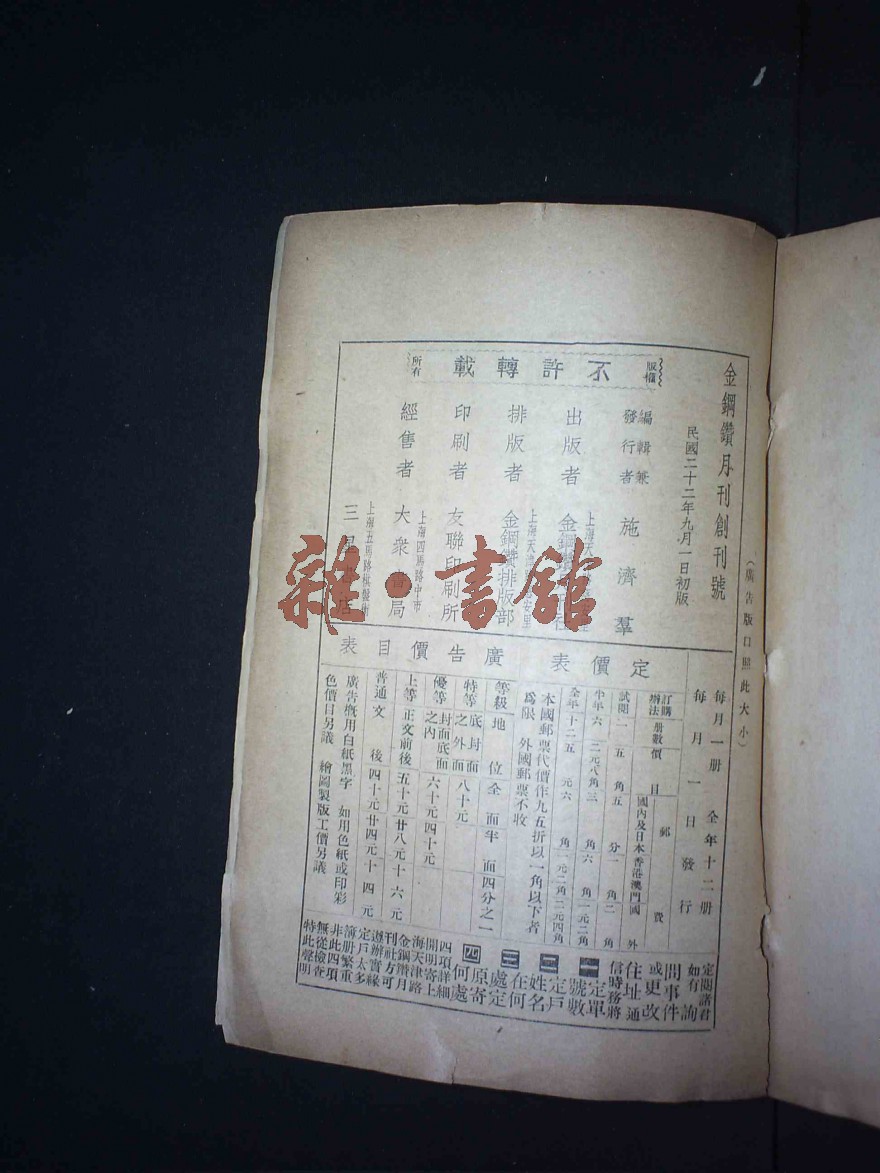 金鋼鑽月刊創刊號
（廣告版口照此大小）
民國二十二年九月一日初版
版權所有
不許轉載
編輯兼發行者 施濟羣
出版者
上海天
排版者 金鋼鑽排版部
印刷者 友聯印刷所
上海四馬路中市
經售者 大衆書局
上海五馬路棋盤街
三星書店
雜·書館
每月一册 全年十二册
每月一日發行
定價表
訂購辦法 册數 價目 郵費
國內及日本 香港澳門 國外
試閱 一 五角 五分 一角 二角
半年 六 二元八角 三角 六角 一元二角
全年 十二 五元 六角 一元二角 二元四角
本國郵票代價作九五折以一角以下者
爲限 外國郵票不收
廣告價目表
等級 地位 全面 半面 四分之一
特等 底封面之外面 八十元
優等 封面底面之內 六十元 四十元
上等 正文前後 五十元 廿八元 十六元
普通 文後 四十元 廿四元 十四元
廣告概用白紙黑字 如用色紙或印彩
色價目另議 繪圖製版工價另議
定閱諸君
如有詢
問事件
或更改
住址通
信時務將
一定單號數
二定戶姓名
三在何處定
四原寄何處
四項詳細
開明寄上
海天津路
金鋼鑽月
刊社方可
遵辦實緣
定戶太多
簿册繁重
非此四項
無從檢查
特此聲明